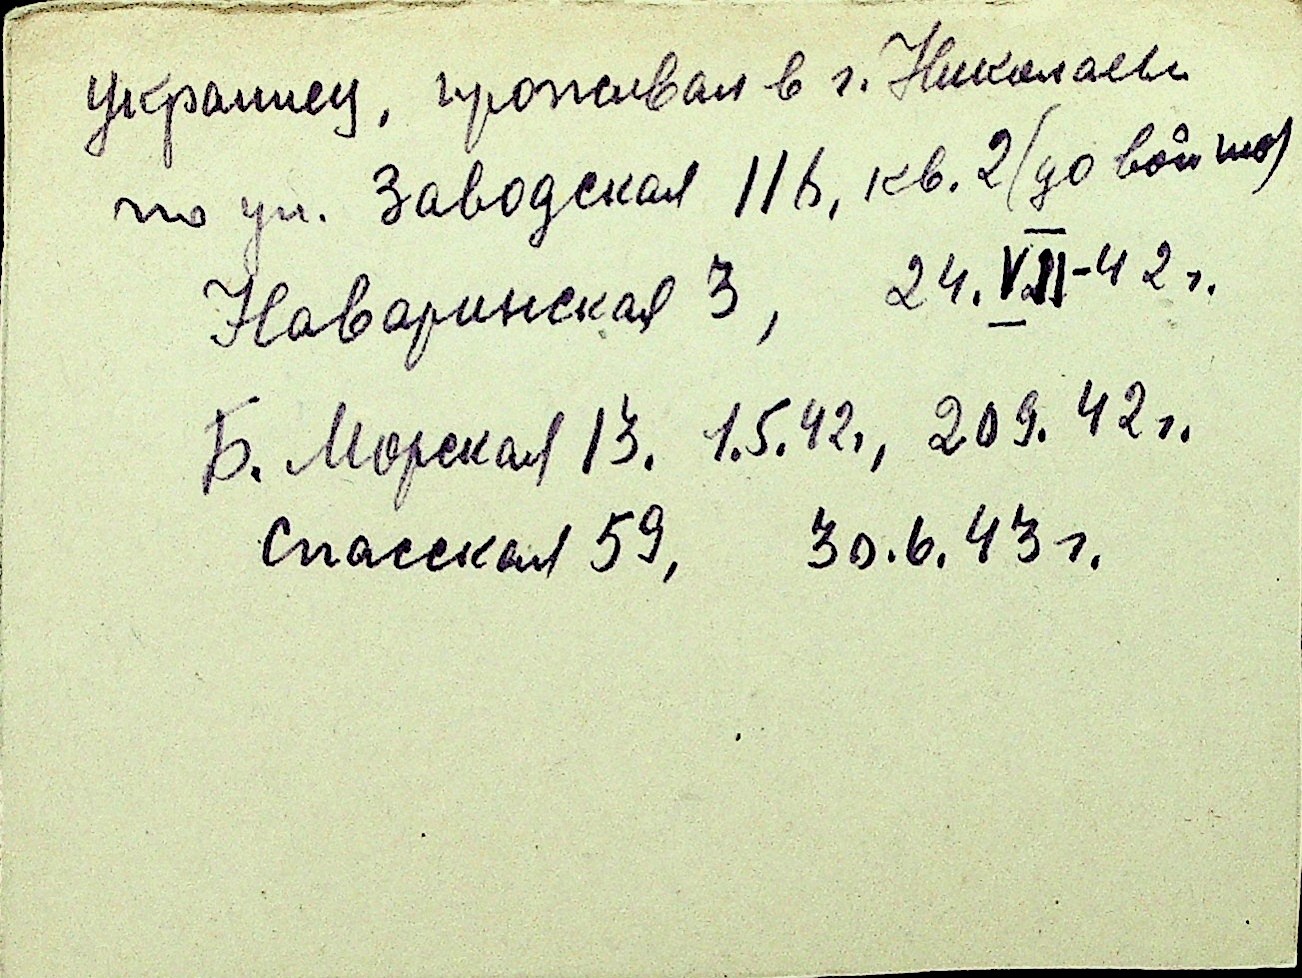 украинец, проживал в г. Николаеве
по ул. Заводская 11 б, кв. 2 (до войны)
Наваринская 3, 24. VII-42 г.
Б. Морская 13. 1.5.42г., 20 9. 42 г.
Спасская 59, 30.6.43 г.